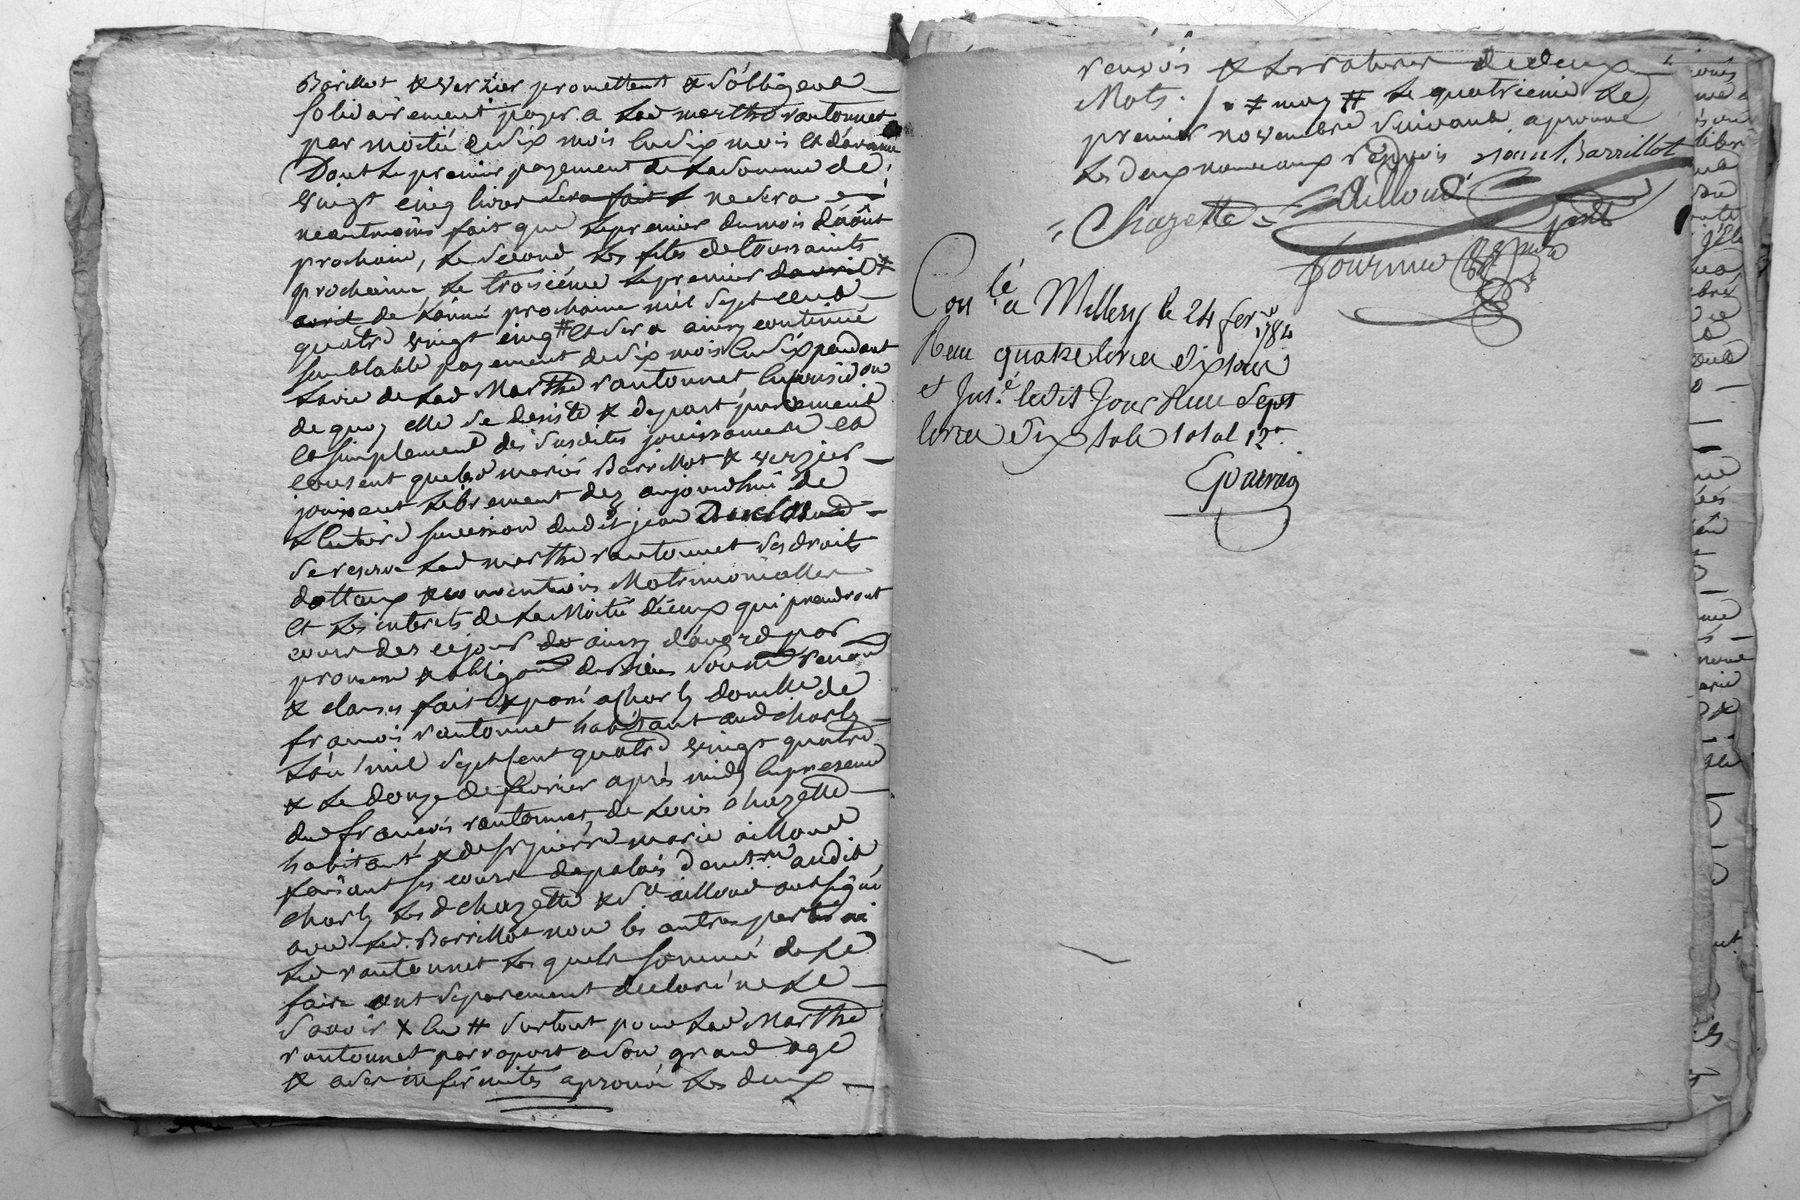 Barillot & verzier promettent & s'obligent
solidairement payer a lad marthe rantonnet
par moitié de six mois en six mois et d'avance
Dont le premier payement de la somme de
vingt cinq livres sera fait & ne sera
neantmoins fait que le premier du mois d'août
prochain, le second les fêtes de toussaints
prochaine le troisiéme le premier davril #
avril de l'année prochaine mil sept cent
quatre vingt cinq # et sera ainsy continué
semblable payement de six mois en six pendant
la vie de lad Marthe rantonnet, en
de quoy elle se desiste & depart purement
et simplement des susdites jouissances et
consent que les mariés Barrillot & verzier
jouissent librement dez aujourdhuy de
l'entiere succession dudit jean
se reserve lad marthe rantonnet ses droits
dottaux & conventions Matrimonialles
et les interets de la Moitié d'ieux qui prendront
cours dez ce jour de ainsy d'accord par
promesse & obligaon
& clauses fait & passé a Charly domille de
françois rantonnet habitant aud charly
L'an mil sept cent quatre vingt quatre
& le douze de fevrier après midy en presence
du françois rantonnet, de Louis chazette
habitant & de sr pierre marie ailloud
faisant ses cours de palais demt audit
charly les d chazette & sr ailloud ont signé
avec led. Barrillot non les autres parties ni
led rantonnet les quels sommé de le
faire ont separement declaré ne le
savoir & en # surtout pour lad Marthe
rantonnet par raport a son grand age
& a ses infirmités aprouvé les deux
renvois & les ratures de deux
Mots . / . # may # le quatrieme le
premier novembre suivant aprouvé
les deux nouveaux renvois Barrillot
Chazette Ailloud
Fournier
Con lé a Millery le 24 fer 1784
Reçu quatre livres dix sols
et Ins.é ledit Jour Reçu sept
livres dix sols total 12